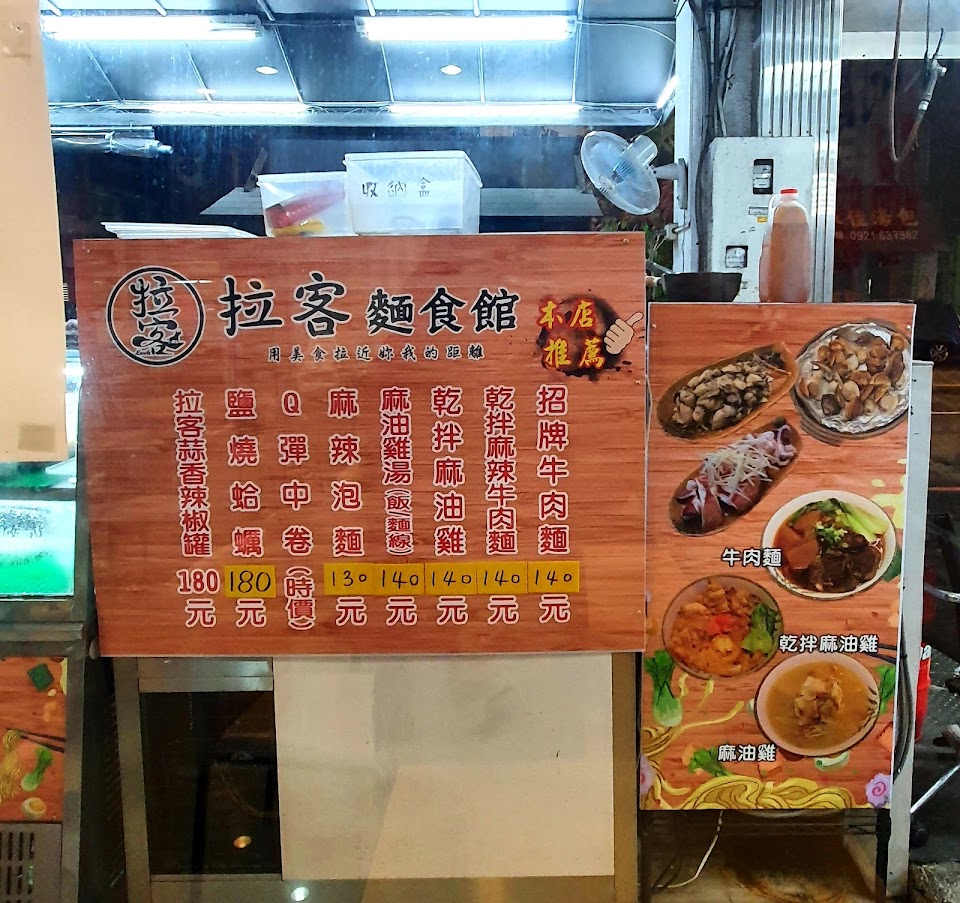 收納盒
0921637862
拉客
拉客麵食館
用美食拉近妳我的距離
本店
推薦
招牌牛肉麵 140元
乾拌麻辣牛肉麵 140元
乾拌麻油雞 140元
麻油雞湯(飯/麵線) 140元
麻辣泡麵 130元
Q彈中卷 (時價)
鹽燒蛤蠣 180元
拉客蒜香辣椒罐 180元
牛肉麵
乾拌麻油雞
麻油雞